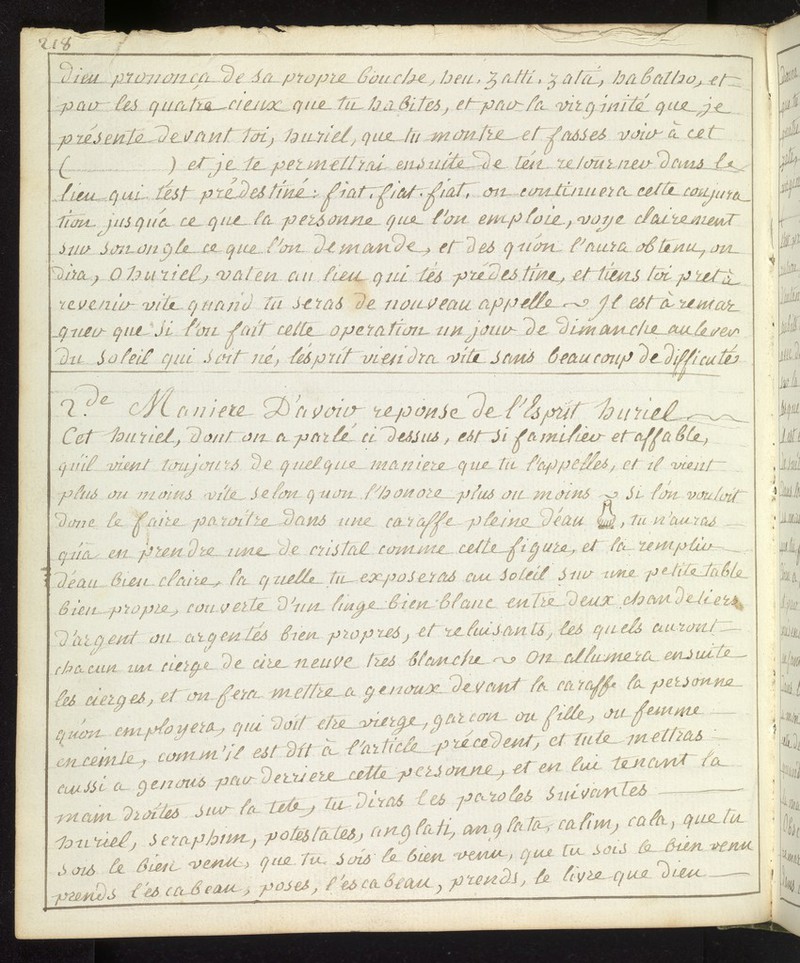 218
Dieu prononça de sa propre bouche, heu, zatti, zata, habatho, et
par les quatre cieux que tu habites, et par la virginité que je
présente devant toi, huriel, que tu montre et fasses voir à cet
( ) et je te permettrai ensuite de t'en retourner dans le
lieu qui t'est prédestiné: fiat. fiat. fiat. on continuera cette conjura
tion jusqu'a ce que la personne que l'on emploie, voye clairement
sur son ongle ce que l'on demande, et des qu'on l'aura obtenu, on
dira, O huriel, vaten au lieu qui tés prédestine, et tiens toi pret à
revenir vite quand tu seras de nouveau appelle ~ Il est à remar
quer que si l'on fait cette operation un jour de dimanche au lever
Du soleil qui soit né, l'ésprit viendra vîte sans beaucoup de difficultés
2.de Maniere D'avoir reponse de l'Esprit huriel
Cet huriel, dont on a parlé ci dessus, est si familier et affable,
qu'il vient toujours de quelque maniere que tu l'appelles, et il vient
plus ou moins vîte selon quon l'honore plus ou moins ~ Si l'on vouloit
donc le faire paroître dans une caraffe pleine d'éau , tu n'auras
qu'a en prendre une de cristal comme cette figure, et la remplir
d'éau bien claire, la quelle tu exposeras au soleil sur une petite table
bien propre, couverte d'un linge bien blanc entre deux chandeliers
d'argent ou argentés bien propres, et reluisants, les quels auront
chacun un cierge de cire neuve tres blanche ~ On allumera ensuite
les cierges, et on fera mettre a genoux devant la caraffe la personne
qu'on employera, qui doit etre vierge, garcon ou fille, ou femme
enceinte, comm'il est dit à l'article précedent, et tu te mettras
aussi a genous par derriere cette personne, et en lui tenant la
main droites sur la tete, tu diras les paroles suivantes
huriel, seraphim, potestates, anglati, anglata, calim, cala, que tu
sois le bien venu, que tu sois le bien venu, que tu sois le bien venu
prends l'éscabeau, poses, l'éscabeau, prends, le livre que dieu